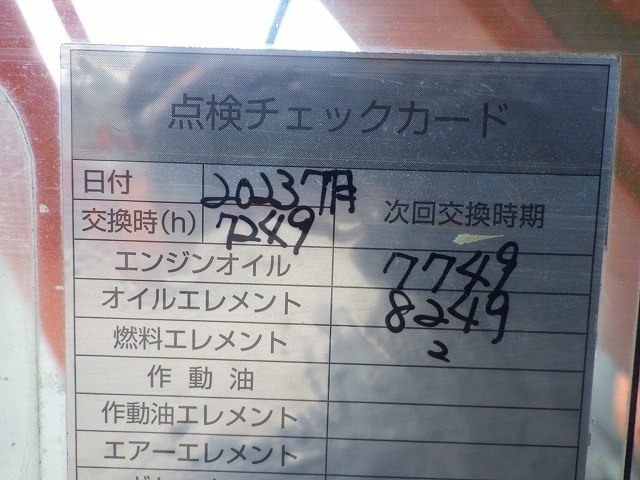 点検チェックカード
日付 2023 7月
交換時(h) 7249 次回交換時期
エンジンオイル 7749
オイルエレメント 8249
燃料エレメント 2
作動油
作動油エレメント
エアーエレメント